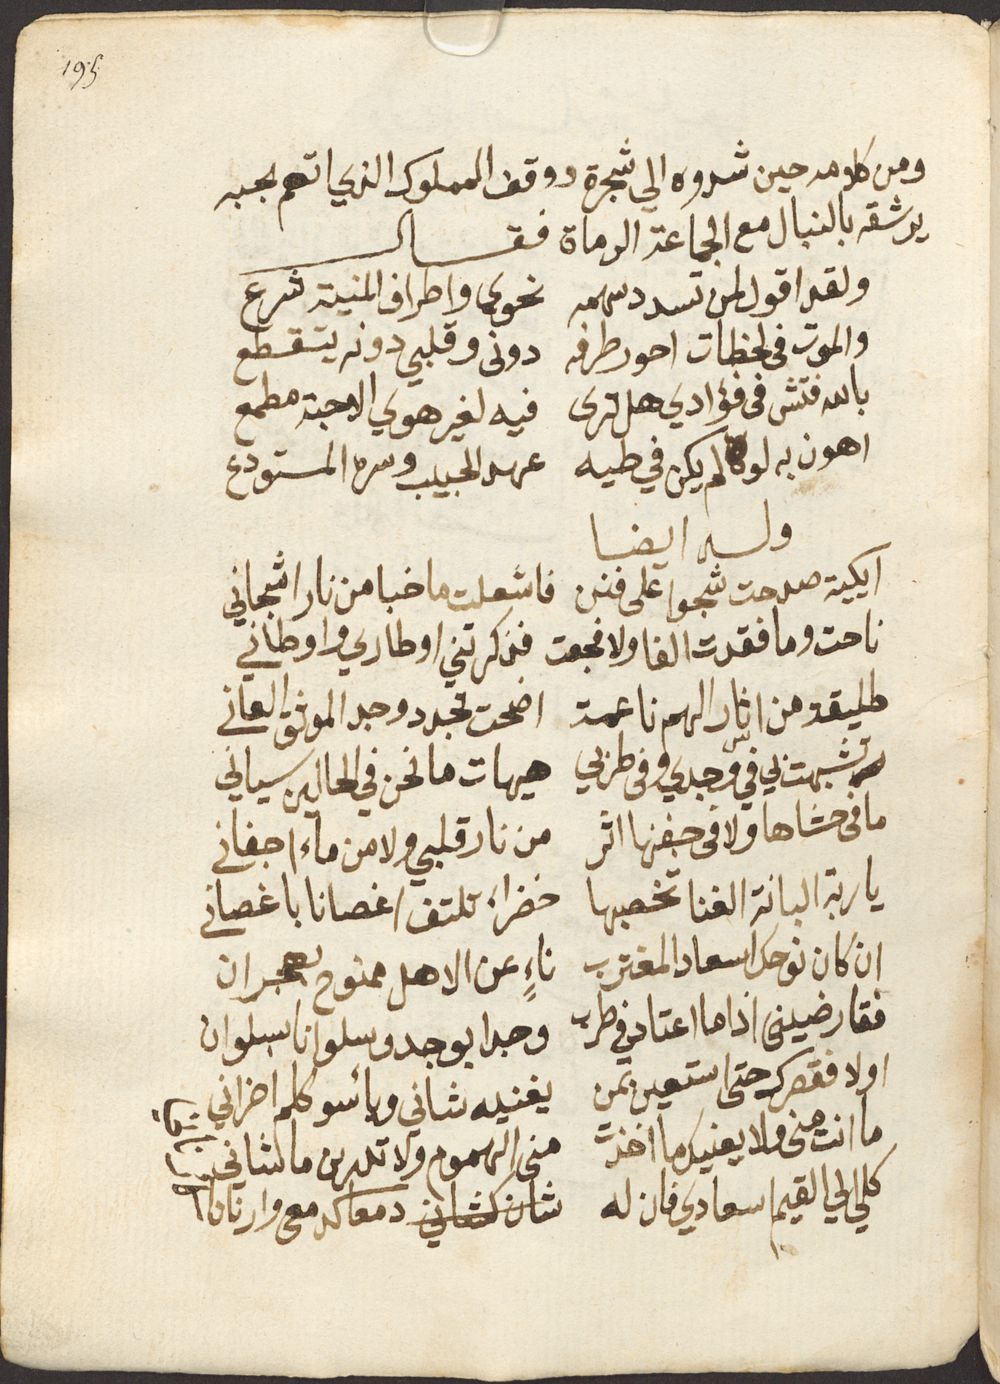 195
ومن كلامه حين شدوه الي شجرة ووقف المملوك الذي اتهم بحبه
يرشقه بالنبال مع الجماعة الرماة فقـــال
ولقد اقول لمن تسدد سهمه نحوي واطراف المنية شرع
والموت في لحظات احور طرفه دونى وقلبي دونه يتقطع
بالله فتش فى فؤادي هل ترى فيه لغير هوي الاحبة مطمع
اهون به لو لم يكن في طيه عهد الحبيب وسره المستودع
وله ايضا
ايكية صدحت شجوا على فنن فاشعلت ما خبا من نار اشجاني
ناحت وما فقدت الفا ولا فجعت فذكرتني اوطاري واوطاني
طليقة من اسار الهم ناعمة اضحت تجدد وجد الموثق العاني
تشبهت بي في وجدي وفى طربي هيهات ما نحن في الحالين سياني
ما فى حشاها ولا فى جفنها اثر من نار قلبي ولا من ماء اجفاني
يا ربة البانة الغنا تحضنها خضراء تلتف اغصانا باغصاني
ان كان نوحك اسعاد المغترب ناءٍ عن الاهل ممنوح بهجران
فقارضيني اذا ما اعتادني طرب وجدا بوجد وسلوانا بسلوان
اولا فقصرك حتى استعين بمن يغنيه شاني وياسو كلم احزاني
ما انت مني ولا يعنيك ما اخذت منى الهموم ولا تدرين ما لشاني
كلي الي الغيم اسعادي فان له شان كشاني دمعا كدمعى وارنانا